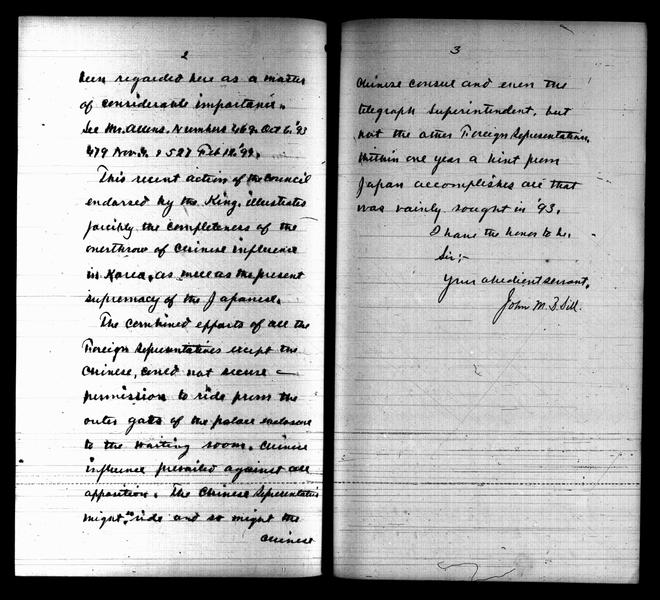 2
been regarded here as a matter
of considerable importance.
See Mr. Allens. Numbers 469. Oct 6. '93
479 Nov. & 527 Feb 12. '94.
This recent action of the Council
endorsed by the King, illustrates
forcibly the completeness of the
overthrow of Chinese influence
in Korea, as well as the present
supremacy of the Japanese.
The combined efforts of all the
Foreign Representatives except the
Chinese, could not secure
permission to ride from the
outer gate of the palace enclosure
to the waiting room. Chinese
influence prevailed against all
opposition. The Chinese Representative
might ride and so might the
Chinese
3
Chinese consul and even the
telegraph Superintendent, but
not the other Foreign Representatives.
Within one year a hint from
Japan accomplishes all that
was vainly sought in '93.
I have the honor to be.
Sir:-
Your obedient servant,
John M. B. Sill.